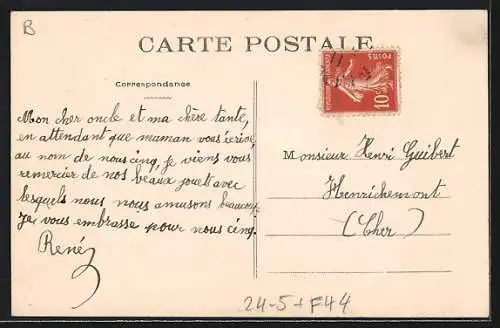 B
CARTE POSTALE
Correspondance
Mon cher oncle et ma chère tante,
en attendant que maman vous écrive
au nom de nous cinq, je viens vous
remercier de nos beaux jouets avec
lesquels nous nous amusons beaucoup.
Je vous embrasse pour nous cinq.
René
POSTES
10
Monsieur Henri Guibert
Henrichemont
(Cher)
24-5+F44